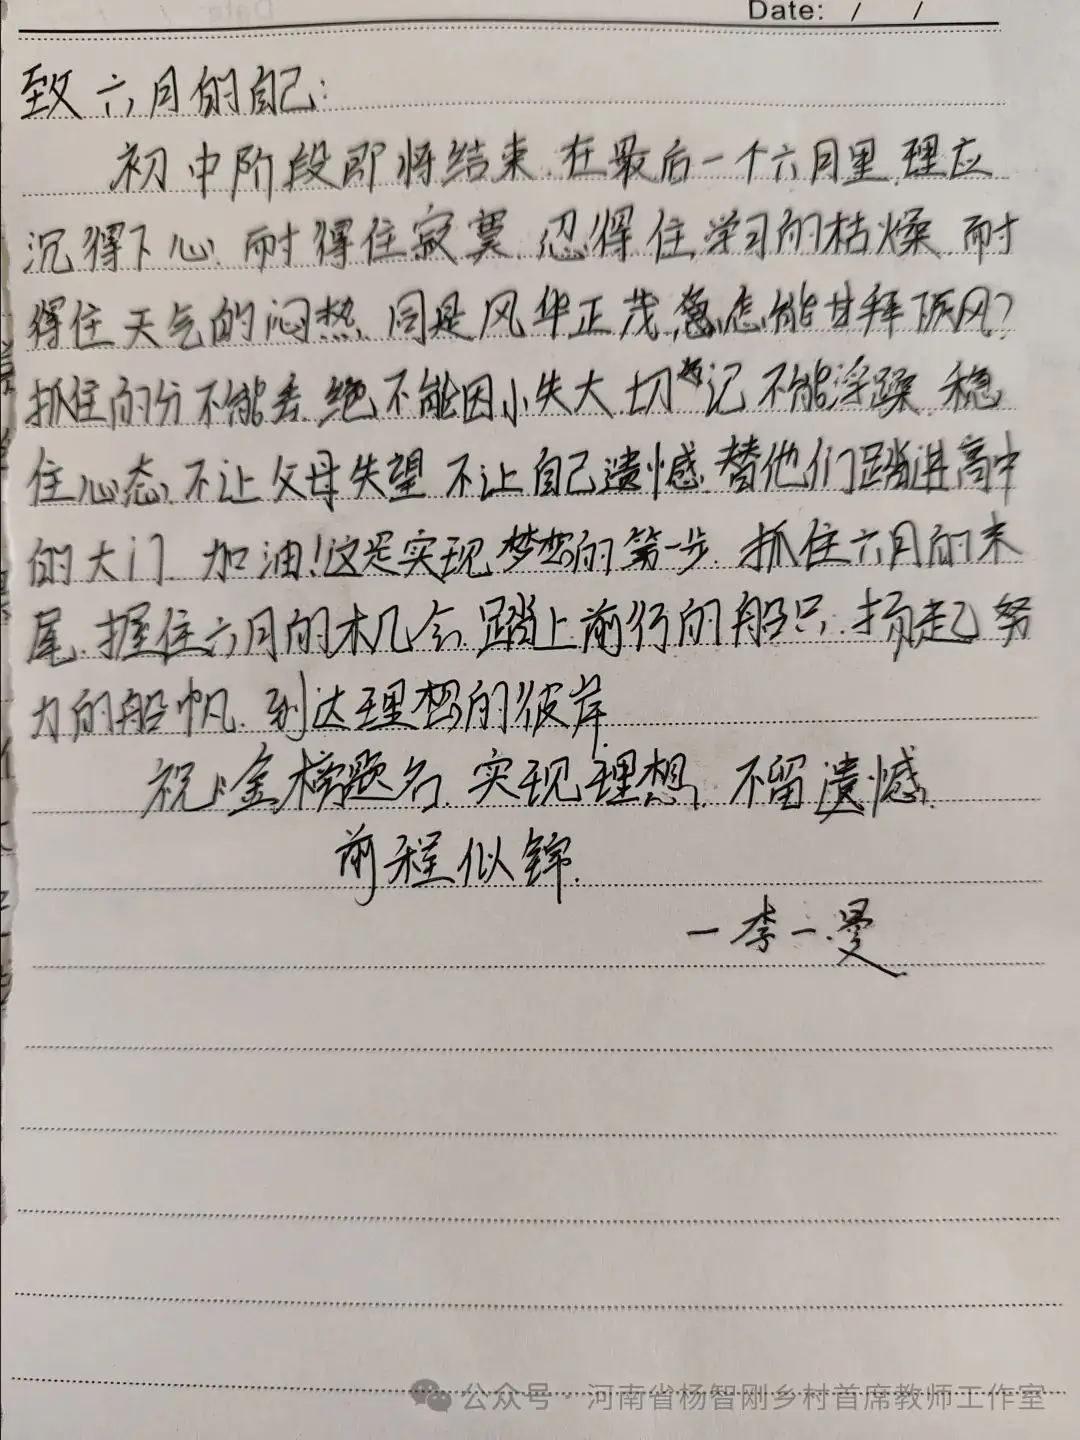 Date: / /
致六月的自己:
初中阶段即将结束.在最后一个六月里.理应
沉得下心.耐得住寂寞.忍得住学习的枯燥.耐
得住天气的闷热.同是风华正茂,怎能甘拜下风?
抓住的分不能丢.绝不能因小失大.切记不能浮躁.稳
住心态,不让父母失望.不让自己遗憾.替他们踏进高中
的大门.加油!这是实现梦想的第一步.抓住六月的末
尾.握住六月的机会.踏上前行的船只.扬起努
力的船帆.到达理想的彼岸.
祝:金榜题名.实现理想.不留遗憾.
前程似锦.
一李一曼
公众号·河南省杨智刚乡村首席教师工作室